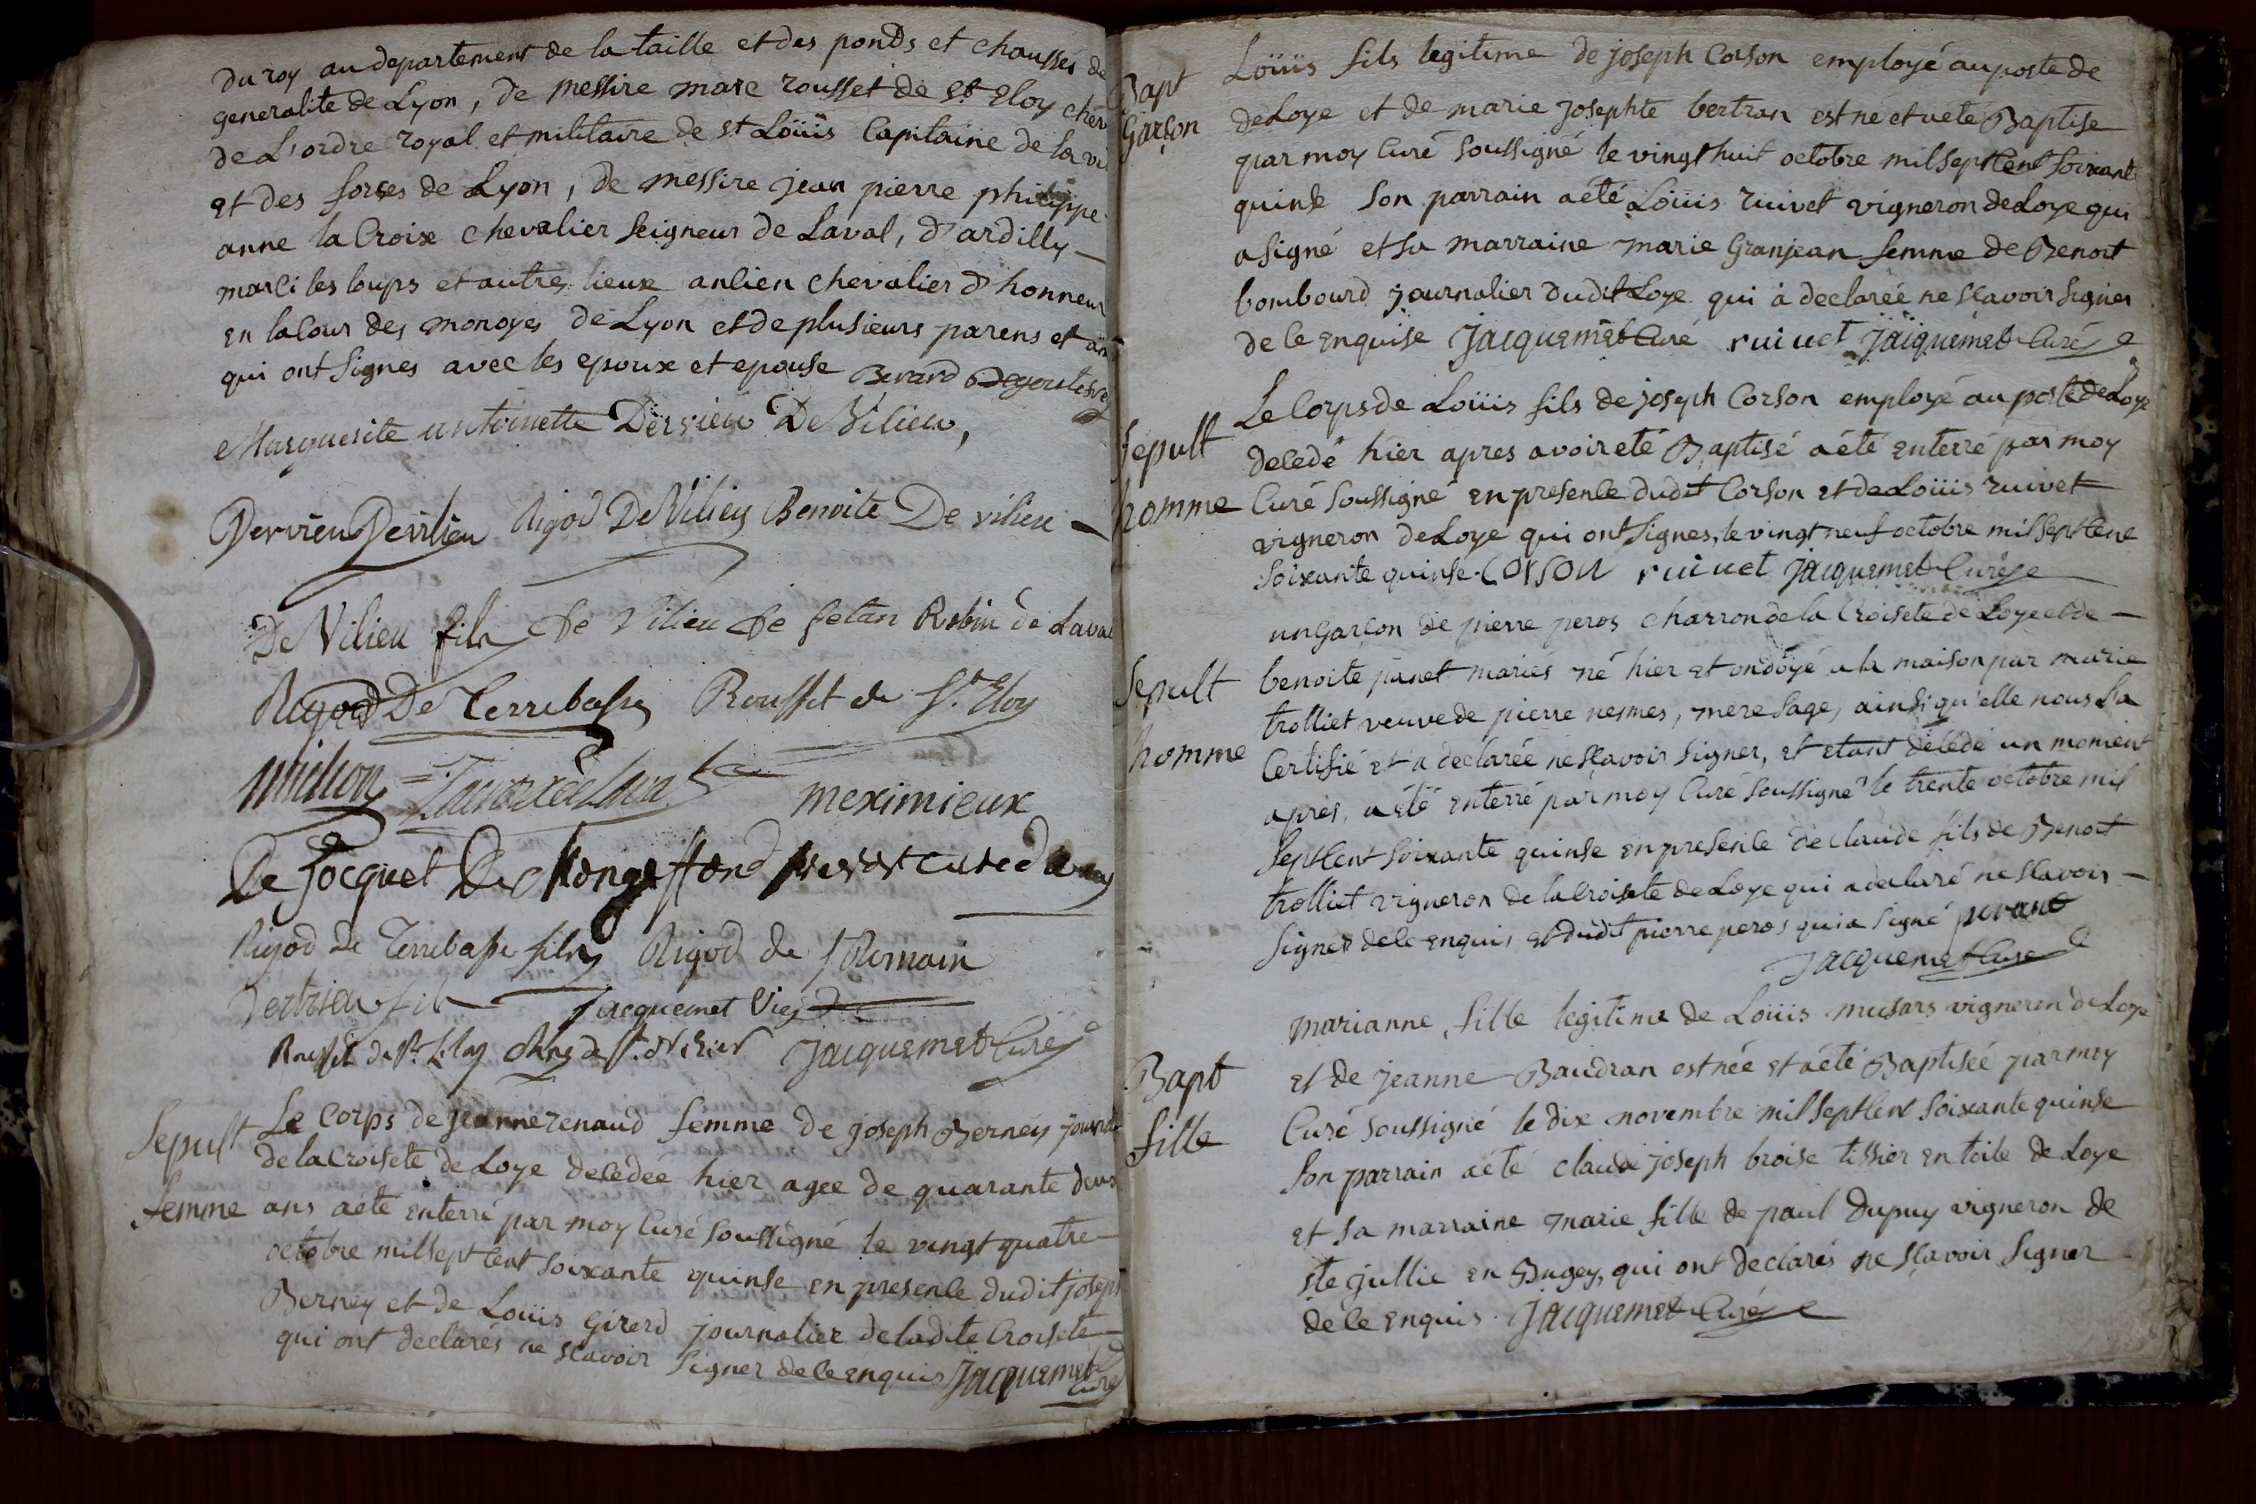 du roy au departement de la taille et des ponds et chaussés de
generalite de Lyon, de messire marc rousset de st Eloy chev
de L'ordre royal et militaire de st Loüis Capitaine de la vi
et des forces de Lyon, de messire jean pierre philippe
anne la Croix chevalier seigneur de Laval, d'ardilly
marci les loups et autres lieux ancien chevalier d'honneur
en la Cour des monoyes de Lyon et de plusieurs parens et am
qui ont signes avec les epoux et epouse Berard
Marguerite antoinette Dervieu De Vilieu,
Dervieu Devilieu Rigod De Vilieu Benoite De vilieu
De Vilieu fils De Vilieu De fetan Robin de Laval
Rigod De Terrebasse Rousset de St. Eloy
michon meximieux
De Jocquet De
Rigod de Terrebasse fils Rigod de st Romain
fils Jacquemet Vic
Rousset de St. Eloy Jacquemet Curé
Sepult
femme
Le Corps de jeanne renaud femme de joseph Berney journa
de la Croisete de Loye decedée hier agee de quarante deux
ans aété enterré par moy Curé soussigné le vingt quatre
octobre mil sept cent soixante quinse en presence dudit joseph
Berney et de Loüis Girerd journalier de ladite Croisete
qui ont declarés ne scavoir signer de ce enquis Jacquemet
Curé
Bapt
Garson
Loüis fils legitime de joseph Corson employé au poste de
de Loye et de marie josephte bertran est né et a eté Baptise
par moy Curé soussigné le vingt huit octobre mil sept Cent soixant
quinse son parrain aété Loüis ruivet vigneron de Loye qui
a signé et sa marraine marie Granjean femme de Benoit
bombourd journalier dudit Loye qui à declarée ne scavoir signer
de ce enquise Jacquemet Curé ruivet Jacquemet Curé
Sepult
homme
Le Corps de Loüis fils de joseph Corson employé au poste de Loye
decedé hier apres avoir eté Baptisé aété enterré par moy
Curé soussigné en presence dudit Corson et de Loüis ruivet
vigneron de Loye qui ont signes, le vingt neuf octobre mil sept cent
soixante quinse. Corson ruivet Jacquemet Curé
Sepult
homme
un Garçon de pierre peros charron de la Croisete de Loye et de
benoite panet mariés né hier et ondoyé a la maison par marie
trolliet veuve de pierre nesmes, mere sage, ainsi qu'elle nous La
Certifié et a declarée ne scavoir signer, et etant décedé un moment
apres, a eté enterré par moy Curé soussigné le trente octobre mil
sept cent soixante quinse en presence de claude fils de Benoit
trolliet vigneron de la Croisete de Loye qui a declaré ne scavoir
signer de ce enquis et dudit pierre peros qui a signé
Jacquemet Curé
Bapt
fille
marianne, fille legitime de Loüis musars vigneron de Loye
et de jeanne Baudran est née et aété Baptisée par moy
Curé soussigné le dix novembre mil sept cent soixante quinse
son parrain aété claude joseph broise tissier en toile de Loye
et sa marraine marie fille de paul Dupuy vigneron de
ste jullie en Bugey, qui ont declarés ne sçavoir signer
de ce enquis. Jacquemet Curé